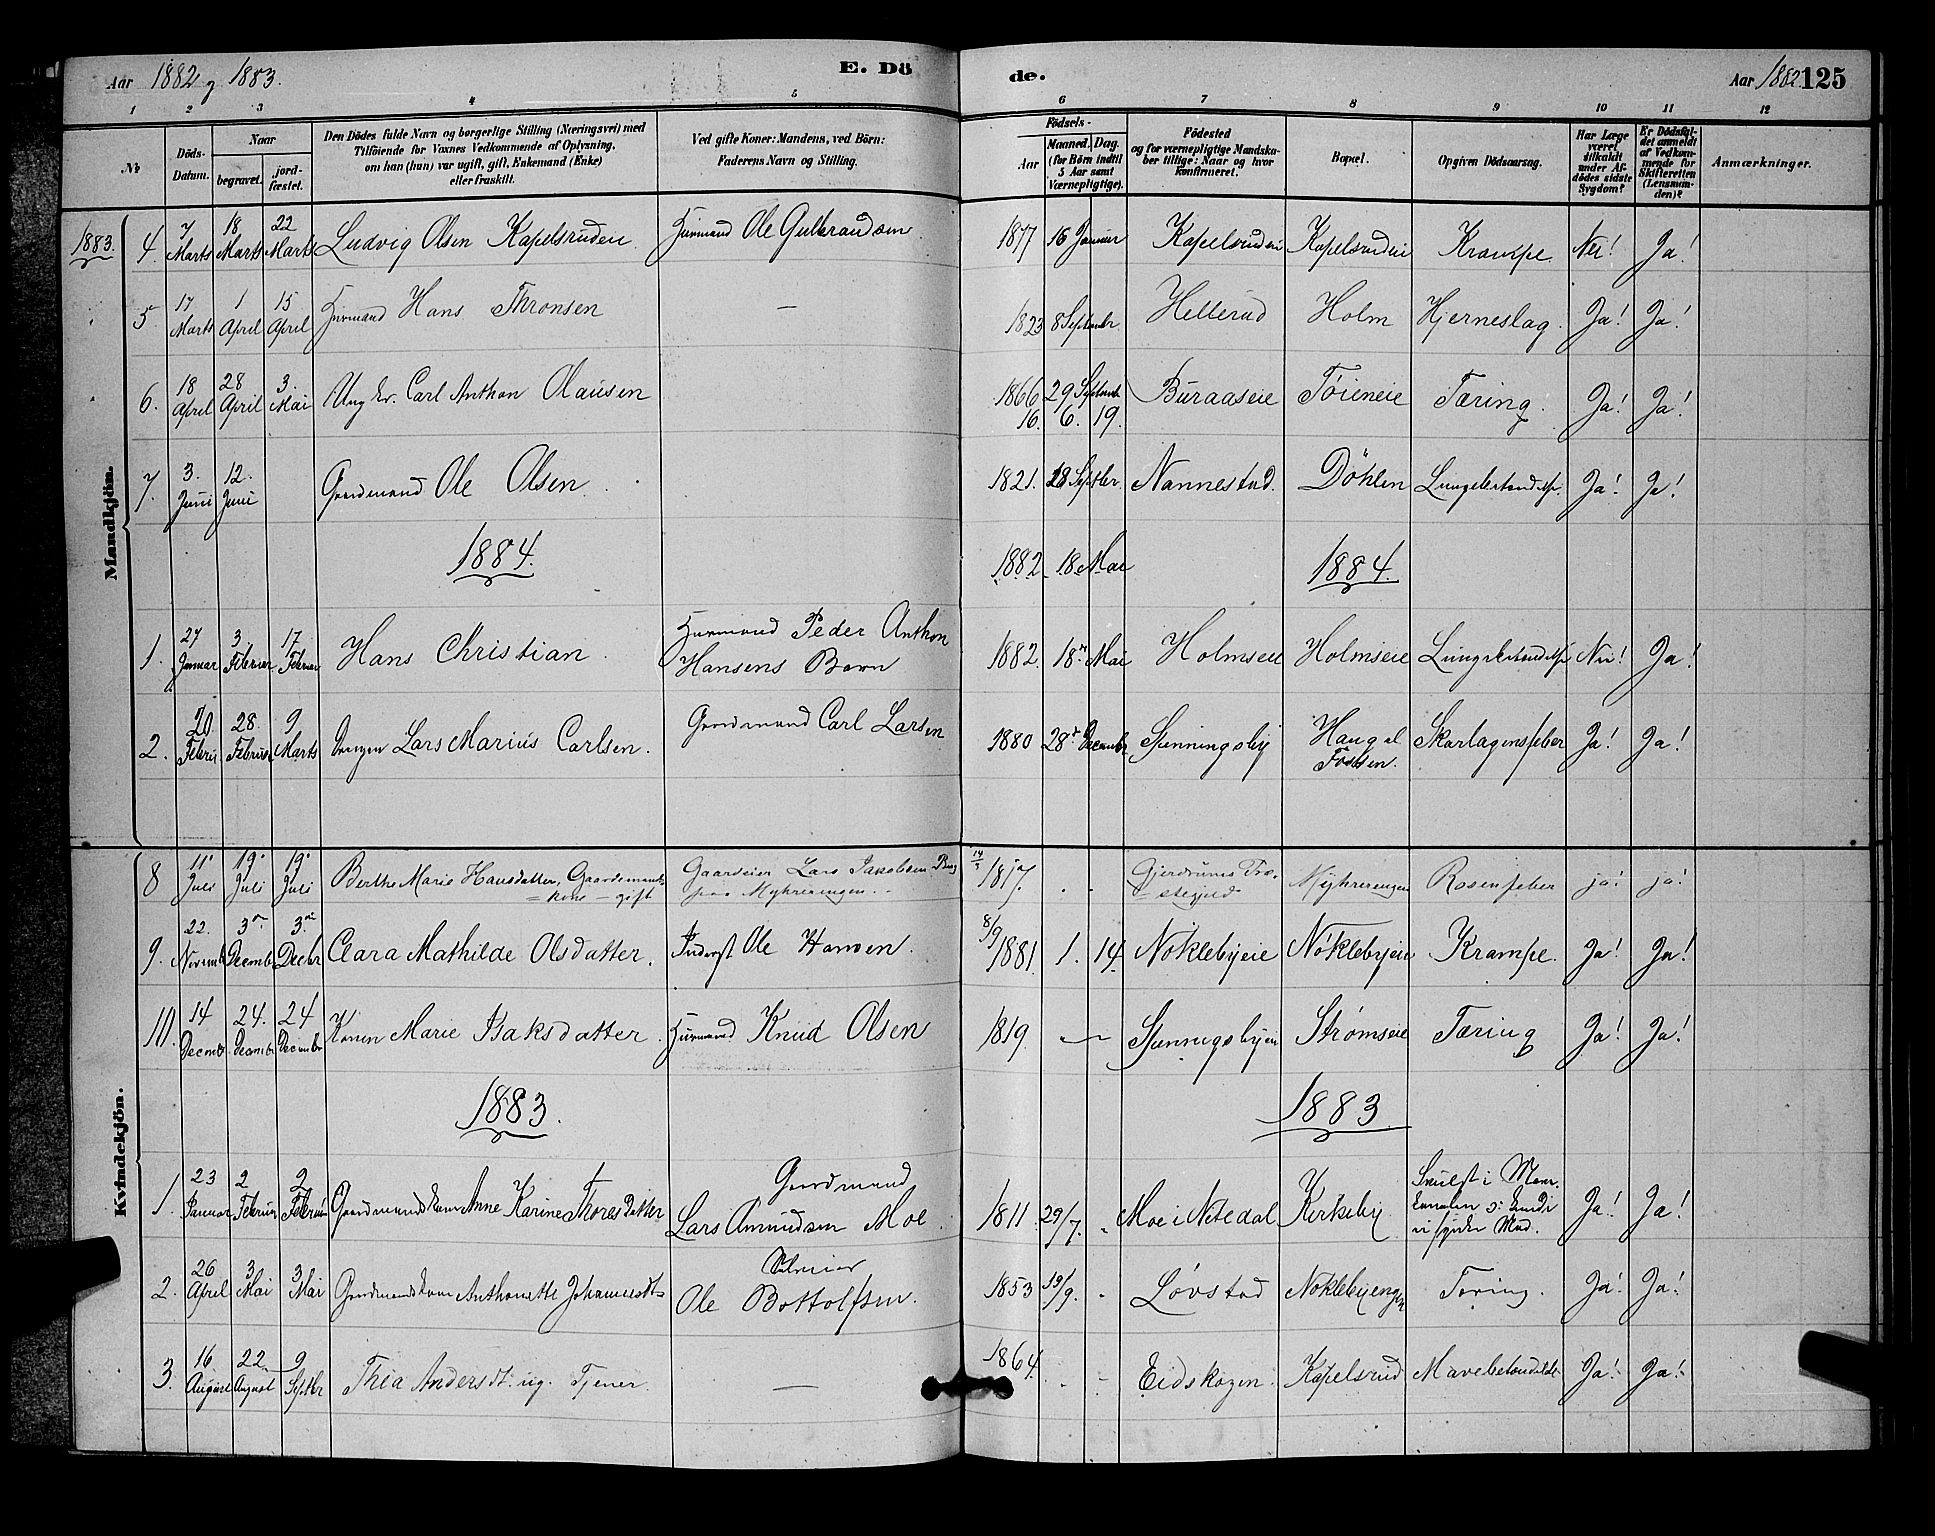 Aar 1882 g 1883. E. Dö de. Aar 1882 125
1 2 3 4 5 6 7 8 9 10 11 12
№ Döds-Datum. Naar begravet. jordfæstet. Den Dödes fulde Navn og borgerlige Stilling (Næringsvei) med Tilföiende for Voxnes Vedkommende af Oplysning, om han (hun) var ugift, gift, Enkemand (Enke) eller fraskilt. Ved gifte Koner: Mandens, ved Börn: Faderens Navn og Stilling. Födsels- Aar Maaned, Dag. (for Börn indtil 5 Aar samt Værnepligtige). Födested og for værnepligtige Mandskaber tillige: Naar og hvor konfirmeret. Bopæl. Opgiven Dödsaarsag. Har Læge været tilkaldt under Afdödes sidste Sygdom? Er Dödsfaldet anmeldt af Vedkommende for Skifteretten (Lensmanden)? Anmærkninger.
Mandkjön.
1883. 4. 7 Marts 18 Marts 22 Marts Ludvig Olsen Kapelsruden Husmand Ole Gulbrandsen 1877 16 Januar Kapelsruden Kapelsruden Krampe. Nei! Ja!
5. 17 Marts 1 April 15 April Husmand Hans Thronsen — 1823 8 Septembr Hellerud Holm Hjerneslag. Ja! Ja!
6. 18 April 28 April 3. Mai Ungkr. Carl Anthon Olausen 1866 29 Septemb Buraaseie Töieneie Tæring. Ja! Ja!
16. 6. 19.
7. 3. Juni 12. Juni Gaardmand Ole Olsen 1821. 28 Septbr. Nannestad Döhlen Lungebetændelse. Ja! Ja!
1884. 1882 18 Mai 1884.
1. 27 Januar 3. Februar 17. Februar Hans Christian Husmand Peder Anthon Hansens Barn 1882. 18de Mai Holmseie Holmseie Lungebetændelse Nei! Ja!
2. 20 Februar 28 Februar 9 Marts Drengen Lars Marius Carlsen. Gaardmand Carl Larsen 1880 28de December Spenningsby Haugal Fossen. Skarlagensfeber Ja! Ja!
Kvindekjön.
8 11. Juli 19. Juli 19. Juli Berthe Marie Hansdatter, Gaardmands=kone - gift Gaardeier Lars Jakobsen Myhrerengen 14/7 1817. . . Gjerdrums Præstegjeld Myhrerengen Rosenfeber ja! ja!
9. 22. Novemb 3de Decembr 3de Decbr Clara Mathilde Olsdatter. Inderst Ole Hansen. 8/9 1881. 1. 14. Nöklebyeie Nöklebyeie Krampe. Ja! Ja!
10. 14 Decembr 24. Decembr 24 Decembr Konen Marie Isaksdatter. Husmand Knud Olsen 1819. — Spenningsbyeie Strømseie Tæring Ja! Ja!
1883. 1883
1. 23 Januar 2 Februar 2 Februar Gaardmandskone Anne Karine Thorasdatter Gaardmand Lars Amundsen Moe. 1811 29/7. . Moe i Nitedal Kirkeby Svulst i Mave Ja! Ja!
2. 26 April 3 Mai 3 Mai Gaardmandskone Anthonette Johannesdt. Ole Bottolfsen. 1853 19/9. . Løvstad Noklebyengen Tæring. Ja! Ja!
3. 16 August 22 August 9 Septbr Thea Andersdt. ug. Tjener — 1864. . - Eidskogen. Kapelsrud Mavebetændelse Ja! Ja!